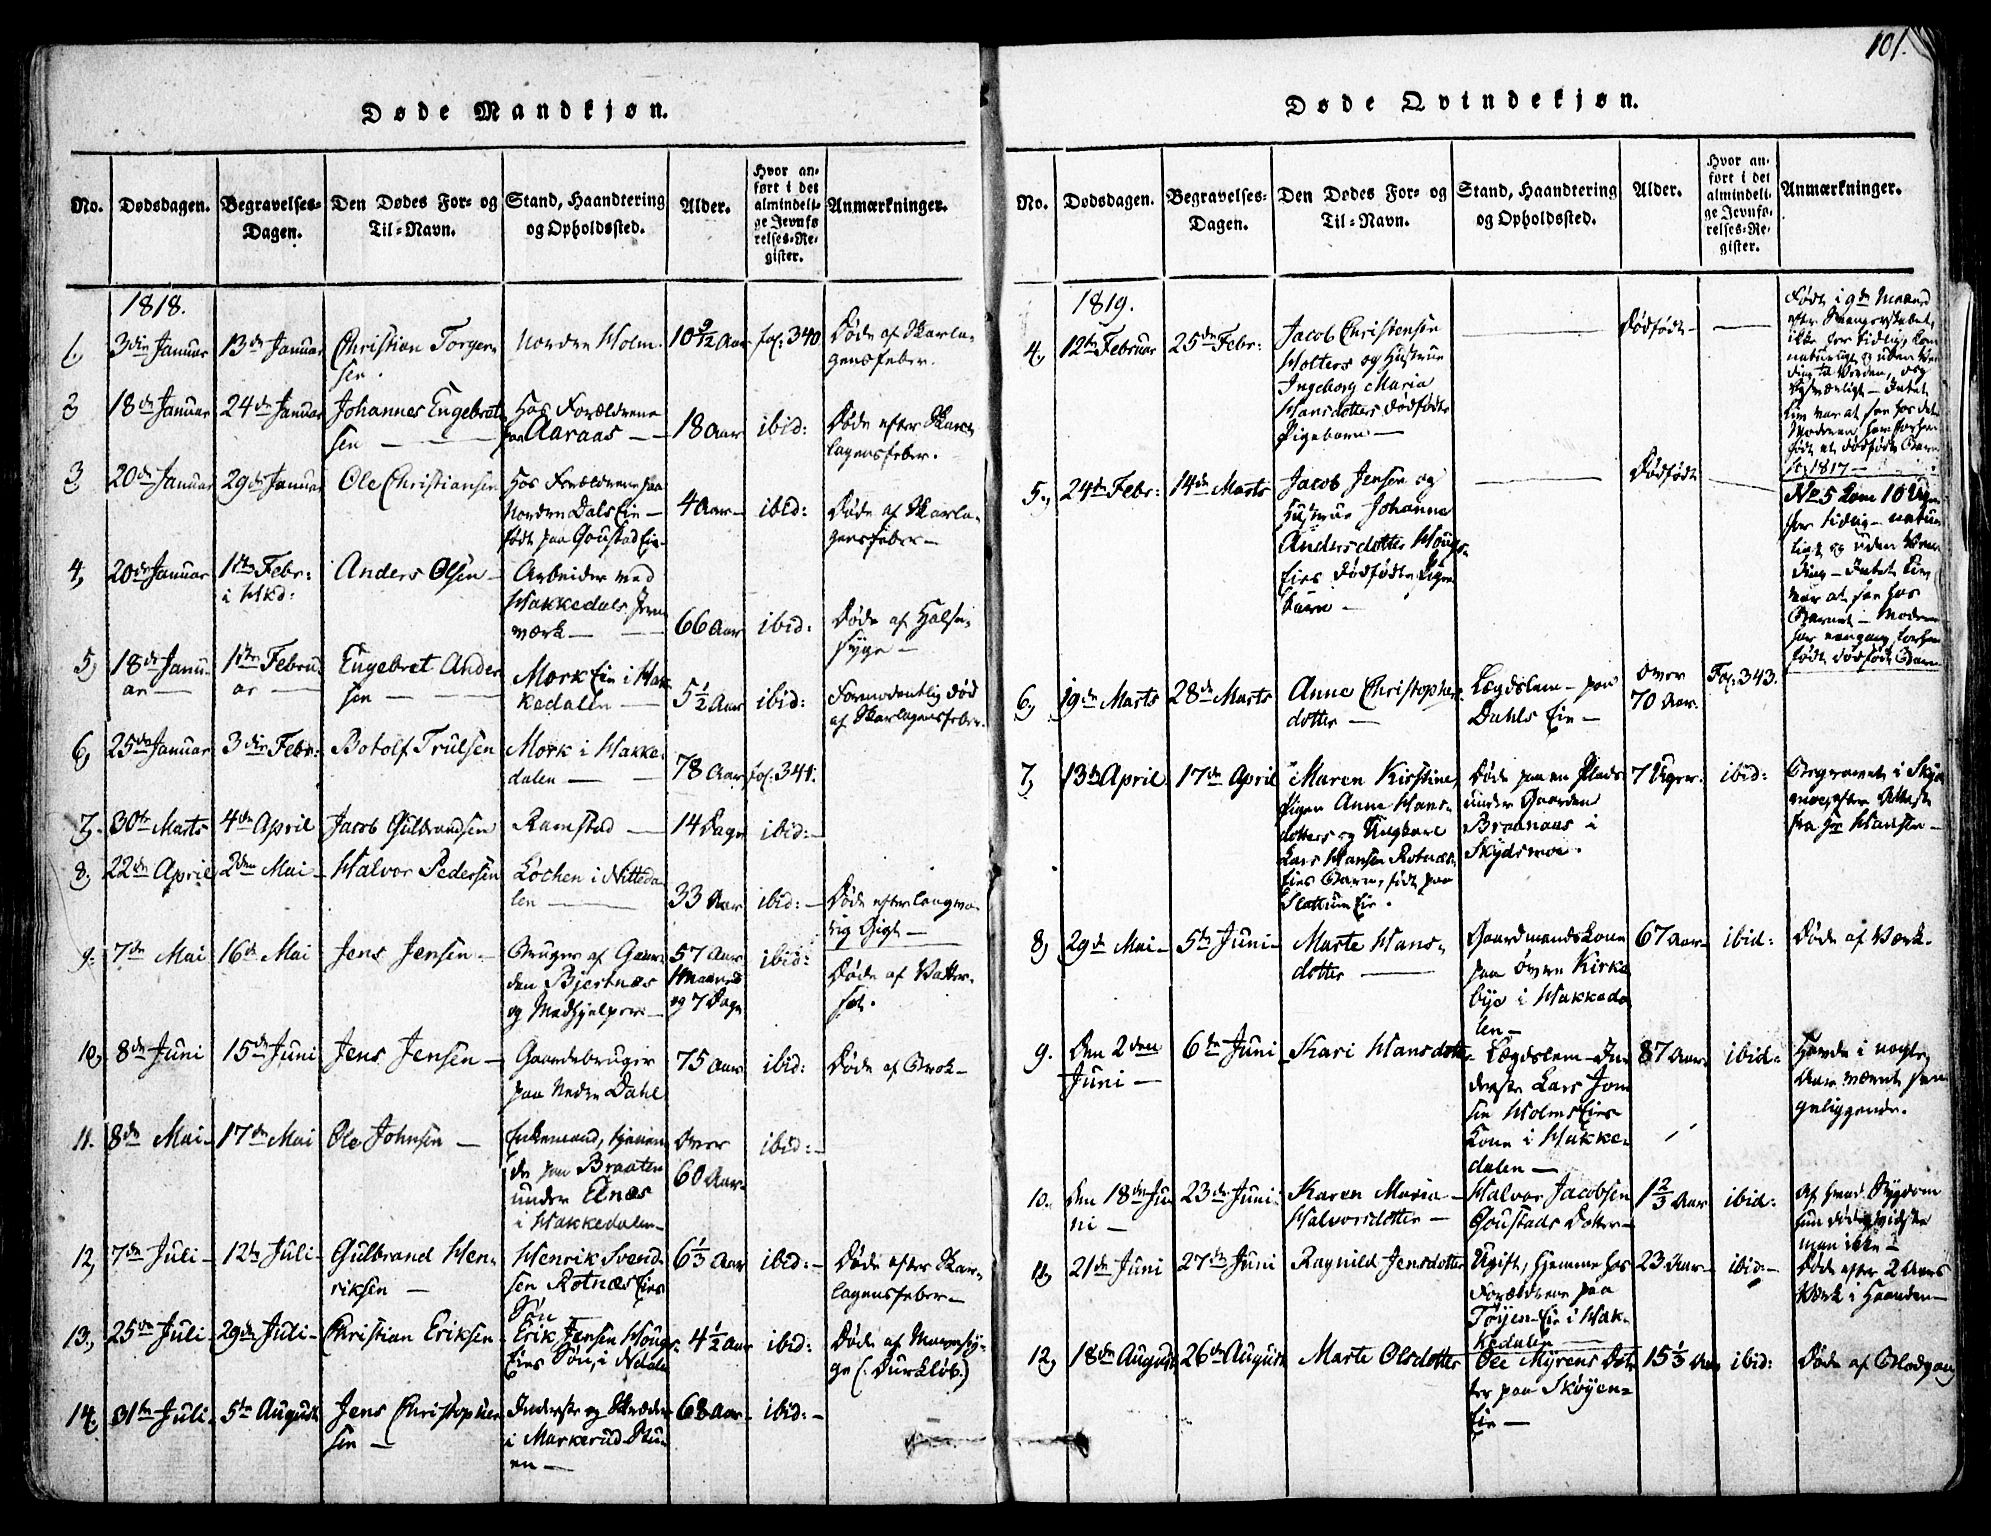 101.
Døde Mandkjøn.
No. Dødsdagen. Begravelses-Dagen. Den Dødes For- og Til-Navn. Stand, Haandtering og Opholdssted. Alder. Hvor anført i det almindelige Jevnførelses-Register. Anmærkninger.
1818.
1, 3die Januar 13de Januar Christian Torgersen. Nordre Holm. 10 9/12 Aar fol: 340 Døde af Skarlagensfeber.
2 18de Januar 24de Januar Johannes Engebretsen Hos Forældrene paa Aaraas 18 Aar ibid: Døde efter Skarlagensfeber.
3 20de Januar 29de Januar Ole Christiansen Hos Forældrene paa Nordre Dals Eie – født paa Goustad Eie 4 Aar ibid: Døde af Skarlagensfeber
4, 20de Januar 1ste Febr: i Hkd: Anders Olsen Arbeider ved Hakkedals Jernværk 66 Aar ibid: Døde af Halssyge
5, 18de Januar 1ste Februar Engebret Andersen Mork Eie i Hakkedalen 5 1/2 Aar ibid: Formodentlig død af Skarlagensfeber.
6, 25de Januar 3die Febr: Botolf Trulsen Mork i Hakkedalen 78 Aar fol: 341.
7. 30te Marts 4de April Jacob Gulbrandsen Ramstad 14 Dage ibid:
8. 22de April 2den Mai Halvor Pedersen Løchen i Nittedalen 33 Aar ibid: Døde efter langvarig Gigt
9. 7de Mai 16de Mai Jens Jensen Bruger af Gaarden Bjertnæs og Medhjelper 57 Aar Maaned og 7 Dage ibid: Døde af Vattersot.
10, 8de Juni 15de Juni Jens Jensen Gaardebruger paa Nedre Dahl 75 Aar ibid: Døde af Brok
11. 8de Mai 17de Mai Ole Johnsen Enkemand, tjenende paa Braaten under Elnæs i Hakkedalen Over 60 Aar ibid:
12, 7de Juli 12te Juli Gulbrand Henriksen Henrik Svendsen Rotnæs Eies Søn 6 1/3 Aar ibid: Døde efter Skarlagensfeber
13, 25de Juli 29de Juli Christian Eriksen Erik Jensen Hougs Eies Søn, i Ndalen 4 1/2 Aar ibid: Døde af Mavesyge (: Durkløb.)
14, 31te Juli 5te August Jens Christophersen Inderste og Skræder i Markerud Stuen 68 Aar ibid:
Døde Qvindekjøn.
No. Dødsdagen. Begravelses-Dagen. Den Dødes For- og Til-Navn. Stand, Haandtering og Opholdssted. Alder. Hvor anført i det almindelige Jevnførelses-Register. Anmærkninger.
1819.
4, 12te Februar 25de Febr: Jacob Christensen Holters og Hustrue Ingeborg Maria Hansdotters dødfødte Pigebarn Dødfødt Født i 9de Maaned efter Svangerskabet, ikke for tidlig, kom naturligt og uden Vending til Verden, Intet Liv var at see hos det. Moderen har forhen født et dødfødt Barn 1817
5, 24de Febr: 14de Marts Jacob Jensen og Hustrue Johanne Andersdotter Hougs Eies dødfødte Pigebarn Dødfødt No 5 kom 10 Uger for tidlig – naturligt og uden Vending – Intet Liv var at see hos Barnet – Moderen har engang forhen født dødfødt Barn
6, 19de Marts 28de Marts Anne Christophersdotter Lægdslem paa Dahls Eie over 70 Aar. Fol: 343.
7, 13de April 17de April Maren Kirstine, Pigen Anne Hansdotters og Ungkarl Lars Hansen Rotnæs Eies Barn, født paa Slattum Eie. Døde paa en Plads under Gaarden Braanaas i Skydsmoe. 7 Uger. ibid: Begravet i Skydsmoe efter Attest fra Hr Hansen
8, 29de Mai 5te Juni Marte Hansdotter Gaardmandskone paa Øvre Kirkebye i Hakkedalen 67 Aar ibid: Døde af Værk.
9. Den 2den Juni 6te Juni Kari Hansdotter Lægdslem – Inderste Lars Jonsen Holms Eies Kone i Hakkedalen 87 Aar ibid: Havde i nogle Aar været sengeliggende.
10. Den 18de Juni 23de Juni Karen Maria Halvorsdotter Halvor Jacobsen Goustads Dotter 1 2/3 Aar ibid: Af hvad Sygdom hun døde vidste man ikke
11, 21de Juni 27de Juni Ragnild Jensdotter Ugift, hjemme hos Forældrene paa Tøyen-Eie i Hakkedalen 23 Aar ibid: Døde efter 2 Aars Værk i Haanden
12, 18de August 26de August Marte Olsdotter Ole Myrens Dotter paa Skøyen-Eie 15 1/3 Aar ibid: Døde af Blodgang